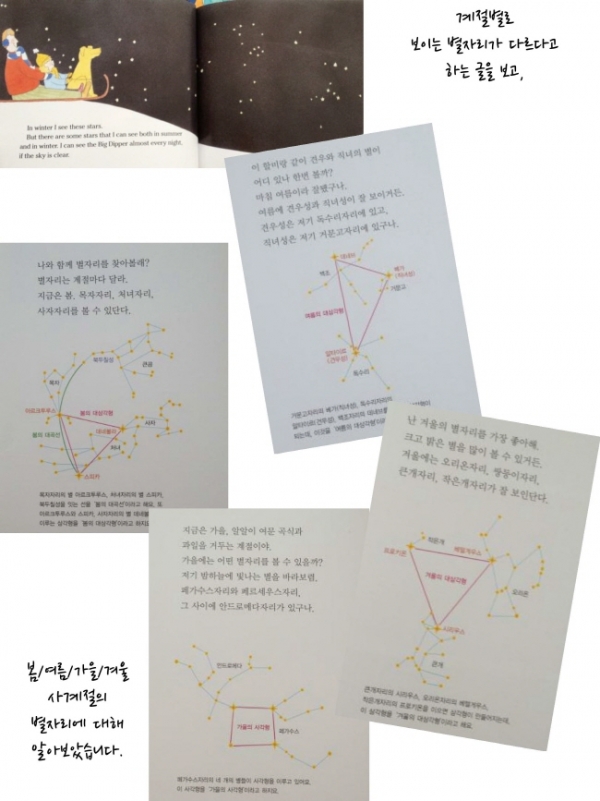 계절별로
보이는 별자리가 다르다고
하는 글을 보고,
In winter I see these stars.
But there are some stars that I can see both in summer
and in winter. I can see the Big Dipper almost every night,
if the sky is clear.
이 할이랑 같이 견우와 직녀의 별이
어디 있나 한번 볼까?
마침 여름이라 잘됐구나.
여름에 견우성과 직녀성이 잘 보이거든.
견우성은 저기 독수리자리에 있고,
직녀성은 저기 거문고자리에 있구나.
데네브
백조
베가
(직녀성)
거문고
여름의 대삼각형
알타이르
(견우성)
독수리
거문고자리의 베가(직녀성), 독수리자리의
알타이르(견우성), 백조자리의 데네브를
되는데, 이것을 '여름의 대삼각형'이라고
나와 함께 별자리를 찾아볼래?
별자리는 계절마다 달라.
지금은 봄. 목자자리, 처녀자리,
사자자리를 볼 수 있단다.
북두칠성
큰곰
목자
아르크투루스
봄의 대삼각형
사자
데네볼라
봄의 대곡선
처녀
스피카
목자자리의 별 아르크투루스, 처녀자리의 별 스피카,
북두칠성을 잇는 선을 '봄의 대곡선'이라고 해요. 또
아르크투루스와 스피카, 사자자리의 별 데네볼
이루는 삼각형을 '봄의 대삼각형'이라고 하지요.
난 겨울의 별자리를 가장 좋아해.
크고 밝은 별을 많이 볼 수 있거든.
겨울에는 오리온자리, 쌍둥이자리,
큰개자리, 작은개자리가 잘 보인단다.
작은개
프로키온
베텔게우스
겨울의 대삼각형
오리온
시리우스
큰개
큰개자리의 시리우스, 오리온자리의 베텔게우스,
작은개자리의 프로키온을 이으면 삼각형이 만들어지는데,
이 삼각형을 '겨울의 대삼각형'이라고 해요.
지금은 가을, 알알이 여문 곡식과
과일을 거두는 계절이야.
가을에는 어떤 별자리를 볼 수 있을까?
저기 밤하늘에 빛나는 별을 바라보렴.
페가수스자리와 페르세우스자리,
그 사이에 안드로메다자리가 있구나.
안드로메다
가을의 사각형
페가수스
페가수스자리의 네 개의 별들이 사각형을 이루고 있어요.
이 사각형을 '가을의 사각형'이라고 하지요.
봄/여름/가을/겨울
사계절의
별자리에 대해
알아보았습니다.